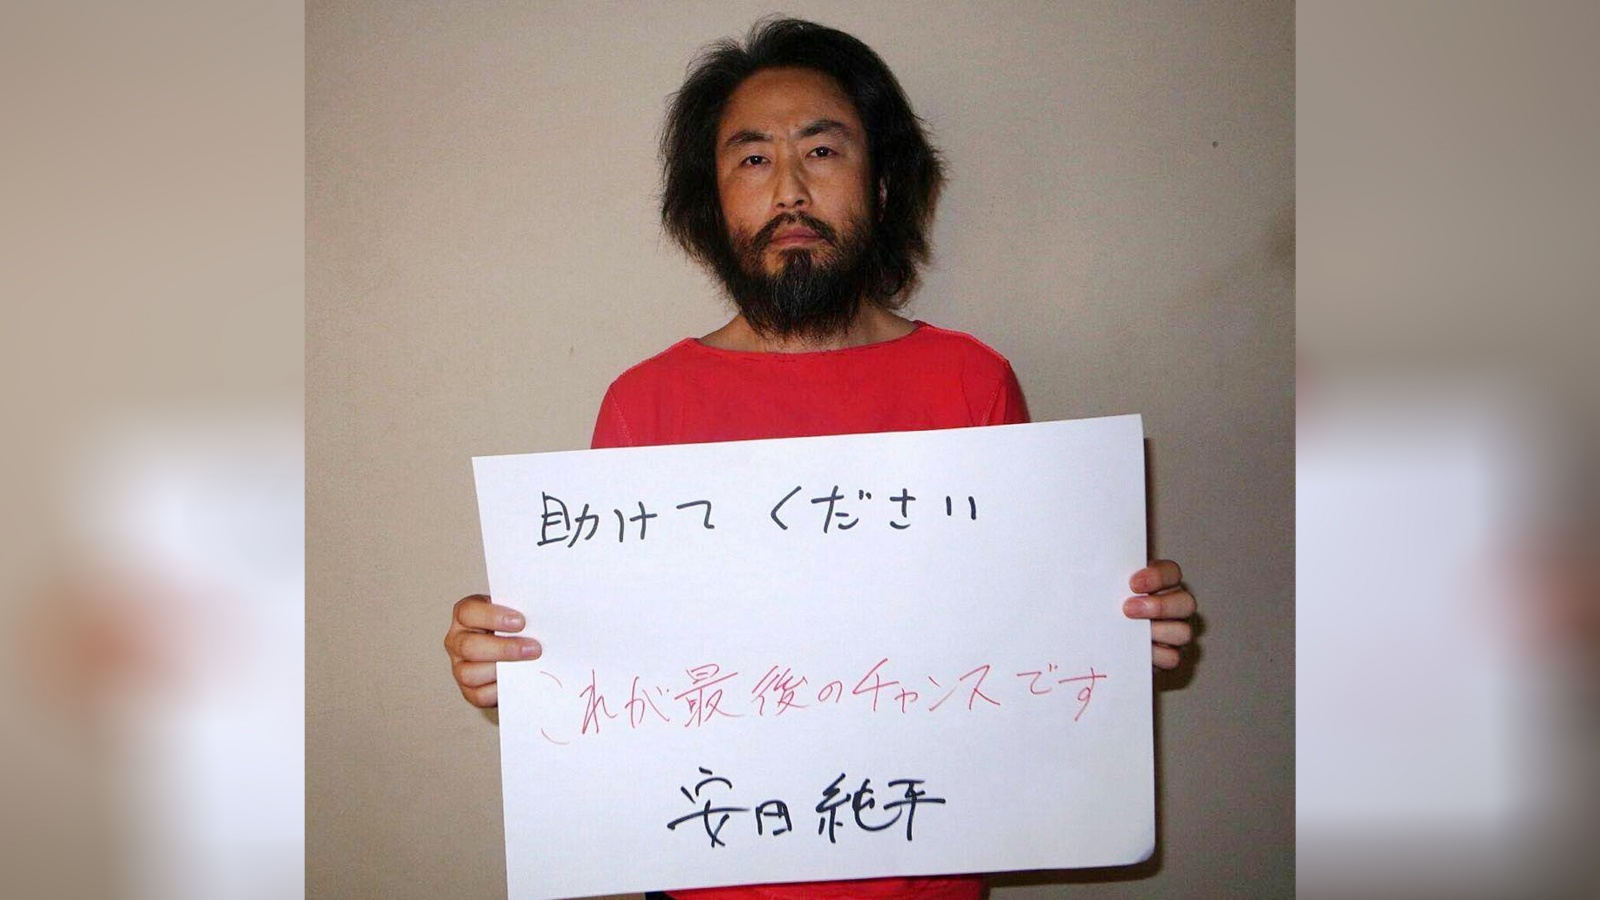 助けて ください
これが最後のチャンスです
安田純平